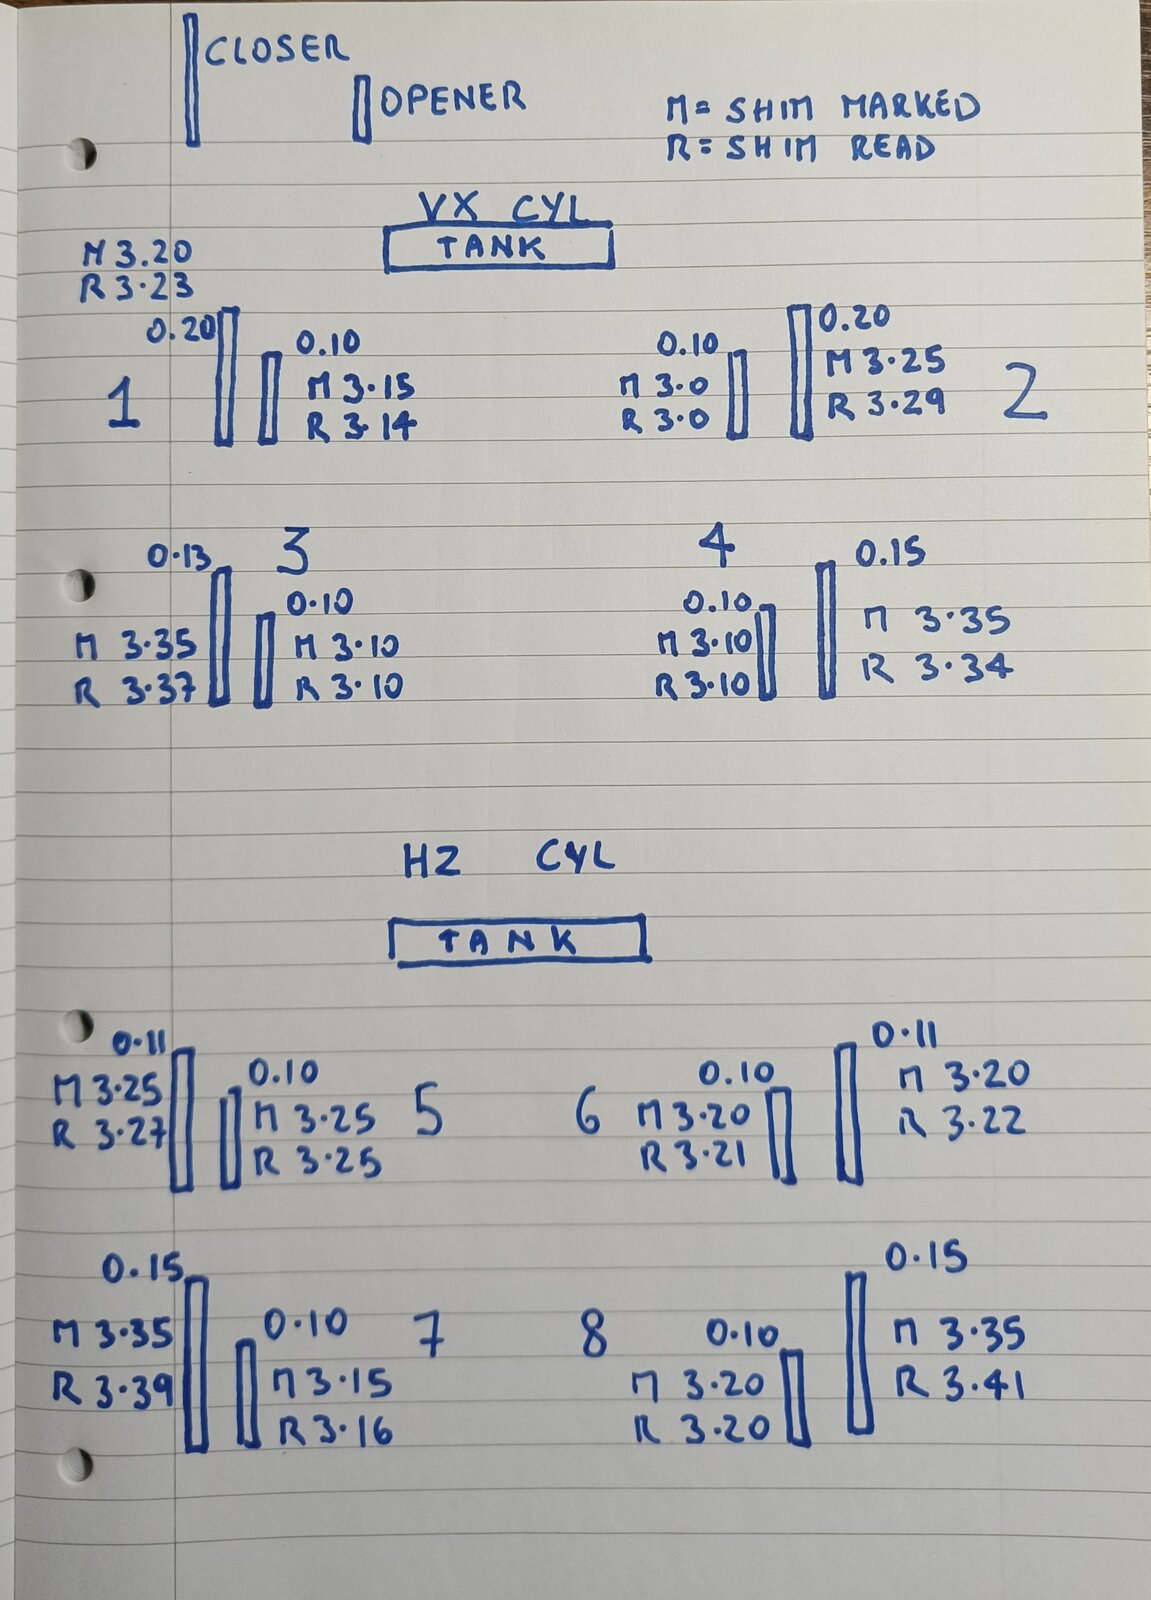 CLOSER
OPENER
M = SHIM MARKED
R = SHIM READ
VX CYL
TANK
M 3.20
R 3.23
0.20
1
0.10
M 3.15
R 3.14
0.10
M 3.0
R 3.0
0.20
M 3.25
R 3.29
2
0.13
3
M 3.35
R 3.37
0.10
M 3.10
R 3.10
4
0.10
M 3.10
R 3.10
0.15
M 3.35
R 3.34
HZ CYL
TANK
0.11
M 3.25
R 3.27
0.10
M 3.25
R 3.25
5
6
0.10
M 3.20
R 3.21
0.11
M 3.20
R 3.22
0.15
M 3.35
R 3.39
0.10
M 3.15
R 3.16
7
8
0.10
M 3.20
R 3.20
0.15
M 3.35
R 3.41